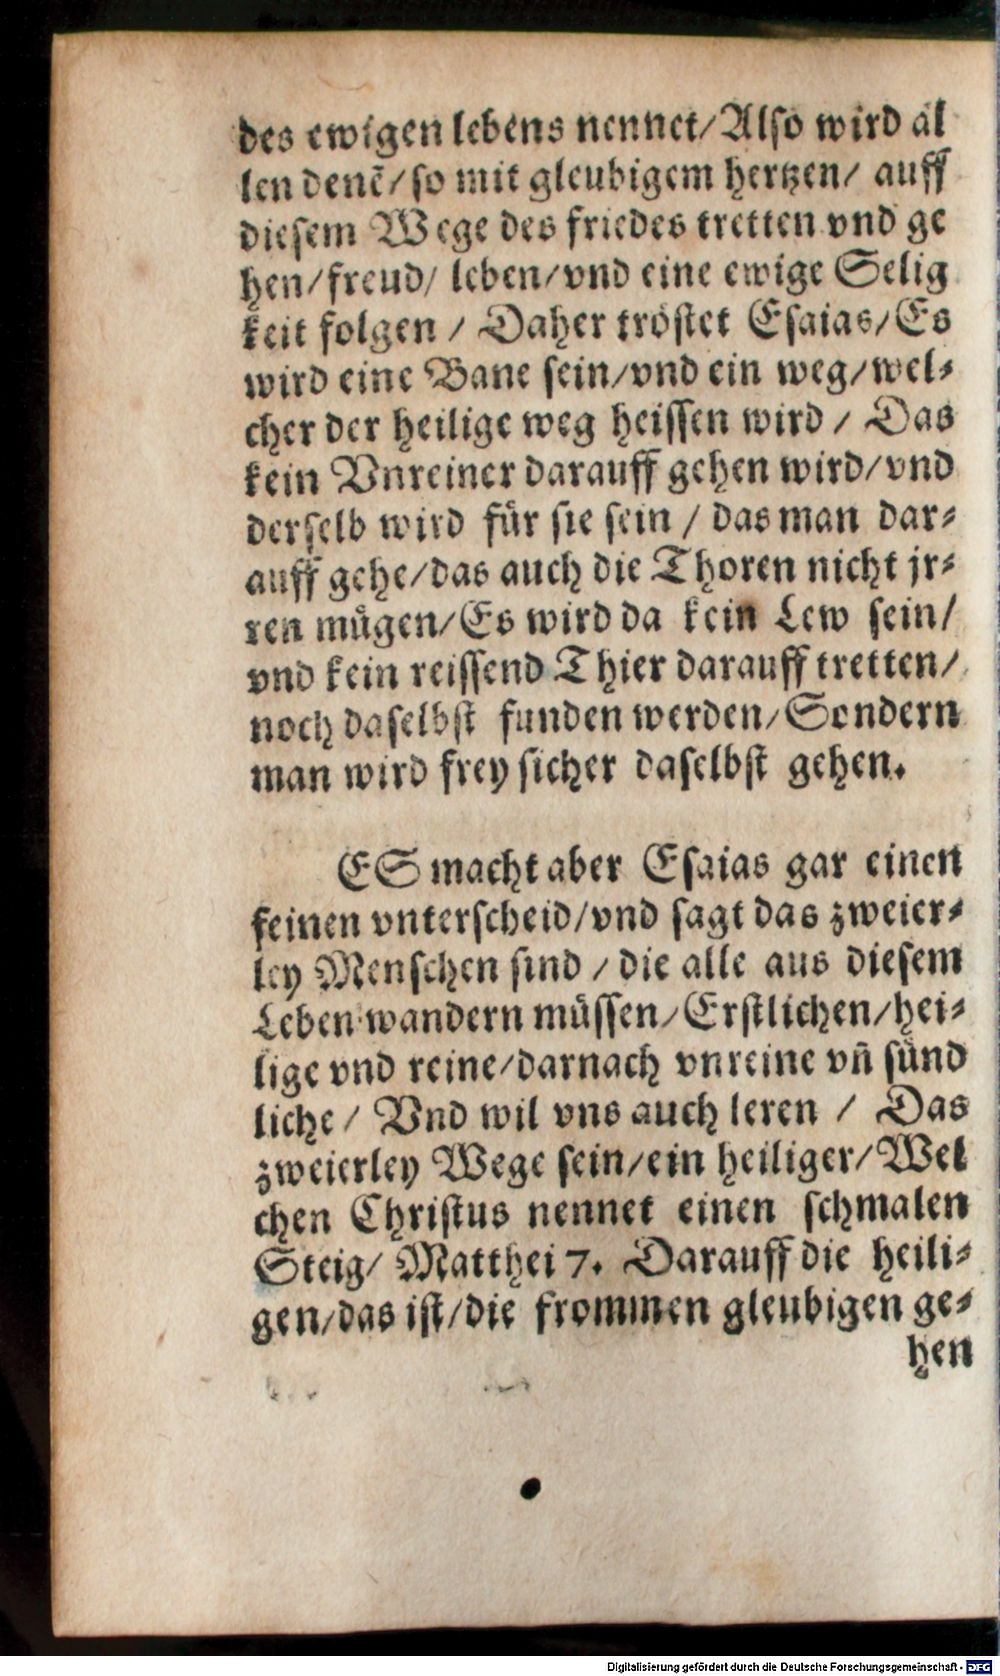 des ewigen lebens nennet/Also wird al
len denẽ/so mit gleubigem hertzen/ auff
diesem Wege des friedes tretten vnd ge
hen/freud/ leben/vnd eine ewige Selig
keit folgen / Daher tröstet Esaias/Es
wird eine Bane sein/vnd ein weg/wel⸗
cher der heilige weg heissen wird / Das
kein Vnreiner darauff gehen wird/vnd
derselb wird für sie sein / das man dar⸗
auff gehe/das auch die Thoren nicht jr⸗
ren mügen/Es wird da kein Lew sein/
vnd kein reissend Thier darauff tretten/
noch daselbst funden werden/Sondern
man wird frey sicher daselbst gehen.
ES macht aber Esaias gar einen
feinen vnterscheid/vnd sagt das zweier⸗
ley Menschen sind / die alle aus diesem
Leben wandern müssen/Erstlichen/hei⸗
lige vnd reine/darnach vnreine vñ sünd
liche / Vnd wil vns auch leren / Das
zweierley Wege sein/ein heiliger/Wel
chen Christus nennet einen schmalen
Steig/ Matthei 7. Darauff die heili⸗
gen/das ist/die frommen gleubigen ge⸗
hen
Digitalisierung gefördert durch die Deutsche Forschungsgemeinschaft - DFG